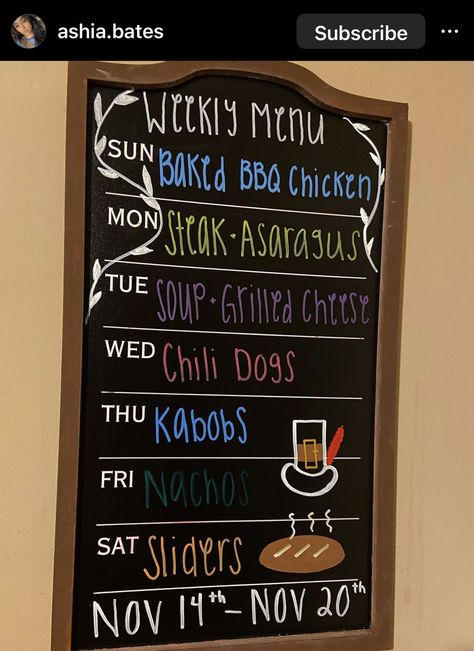 ashia.bates
Subscribe
Weekly Menu
SUN Baked BBQ Chicken
MON Steak · Asaragus
TUE Soup · Grilled Cheese
WED Chili Dogs
THU Kabobs
FRI Nachos
SAT Sliders
NOV 14th - NOV 20th